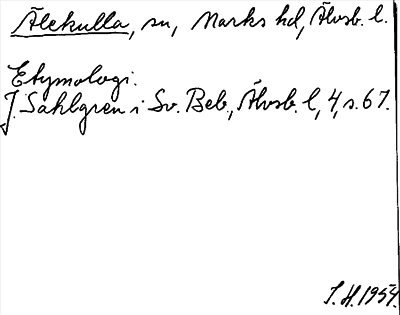 Älekulla, sn, Marks hd, Älvsb. l.
Etymologi.
J. Sahlgren i Sv. Beb., Älvsb. l, 4, s. 67.
S. H. 1954.